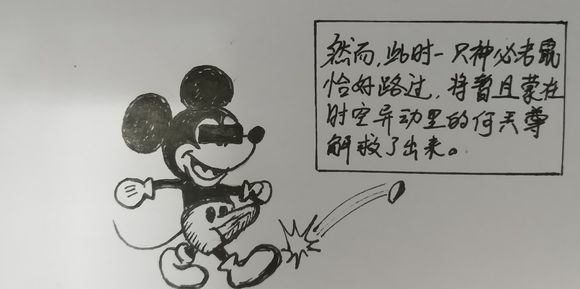 然而,此时一只神必老鼠
恰好路过,将暂且蒙在
时空异动里的何天尊
解救了出来。